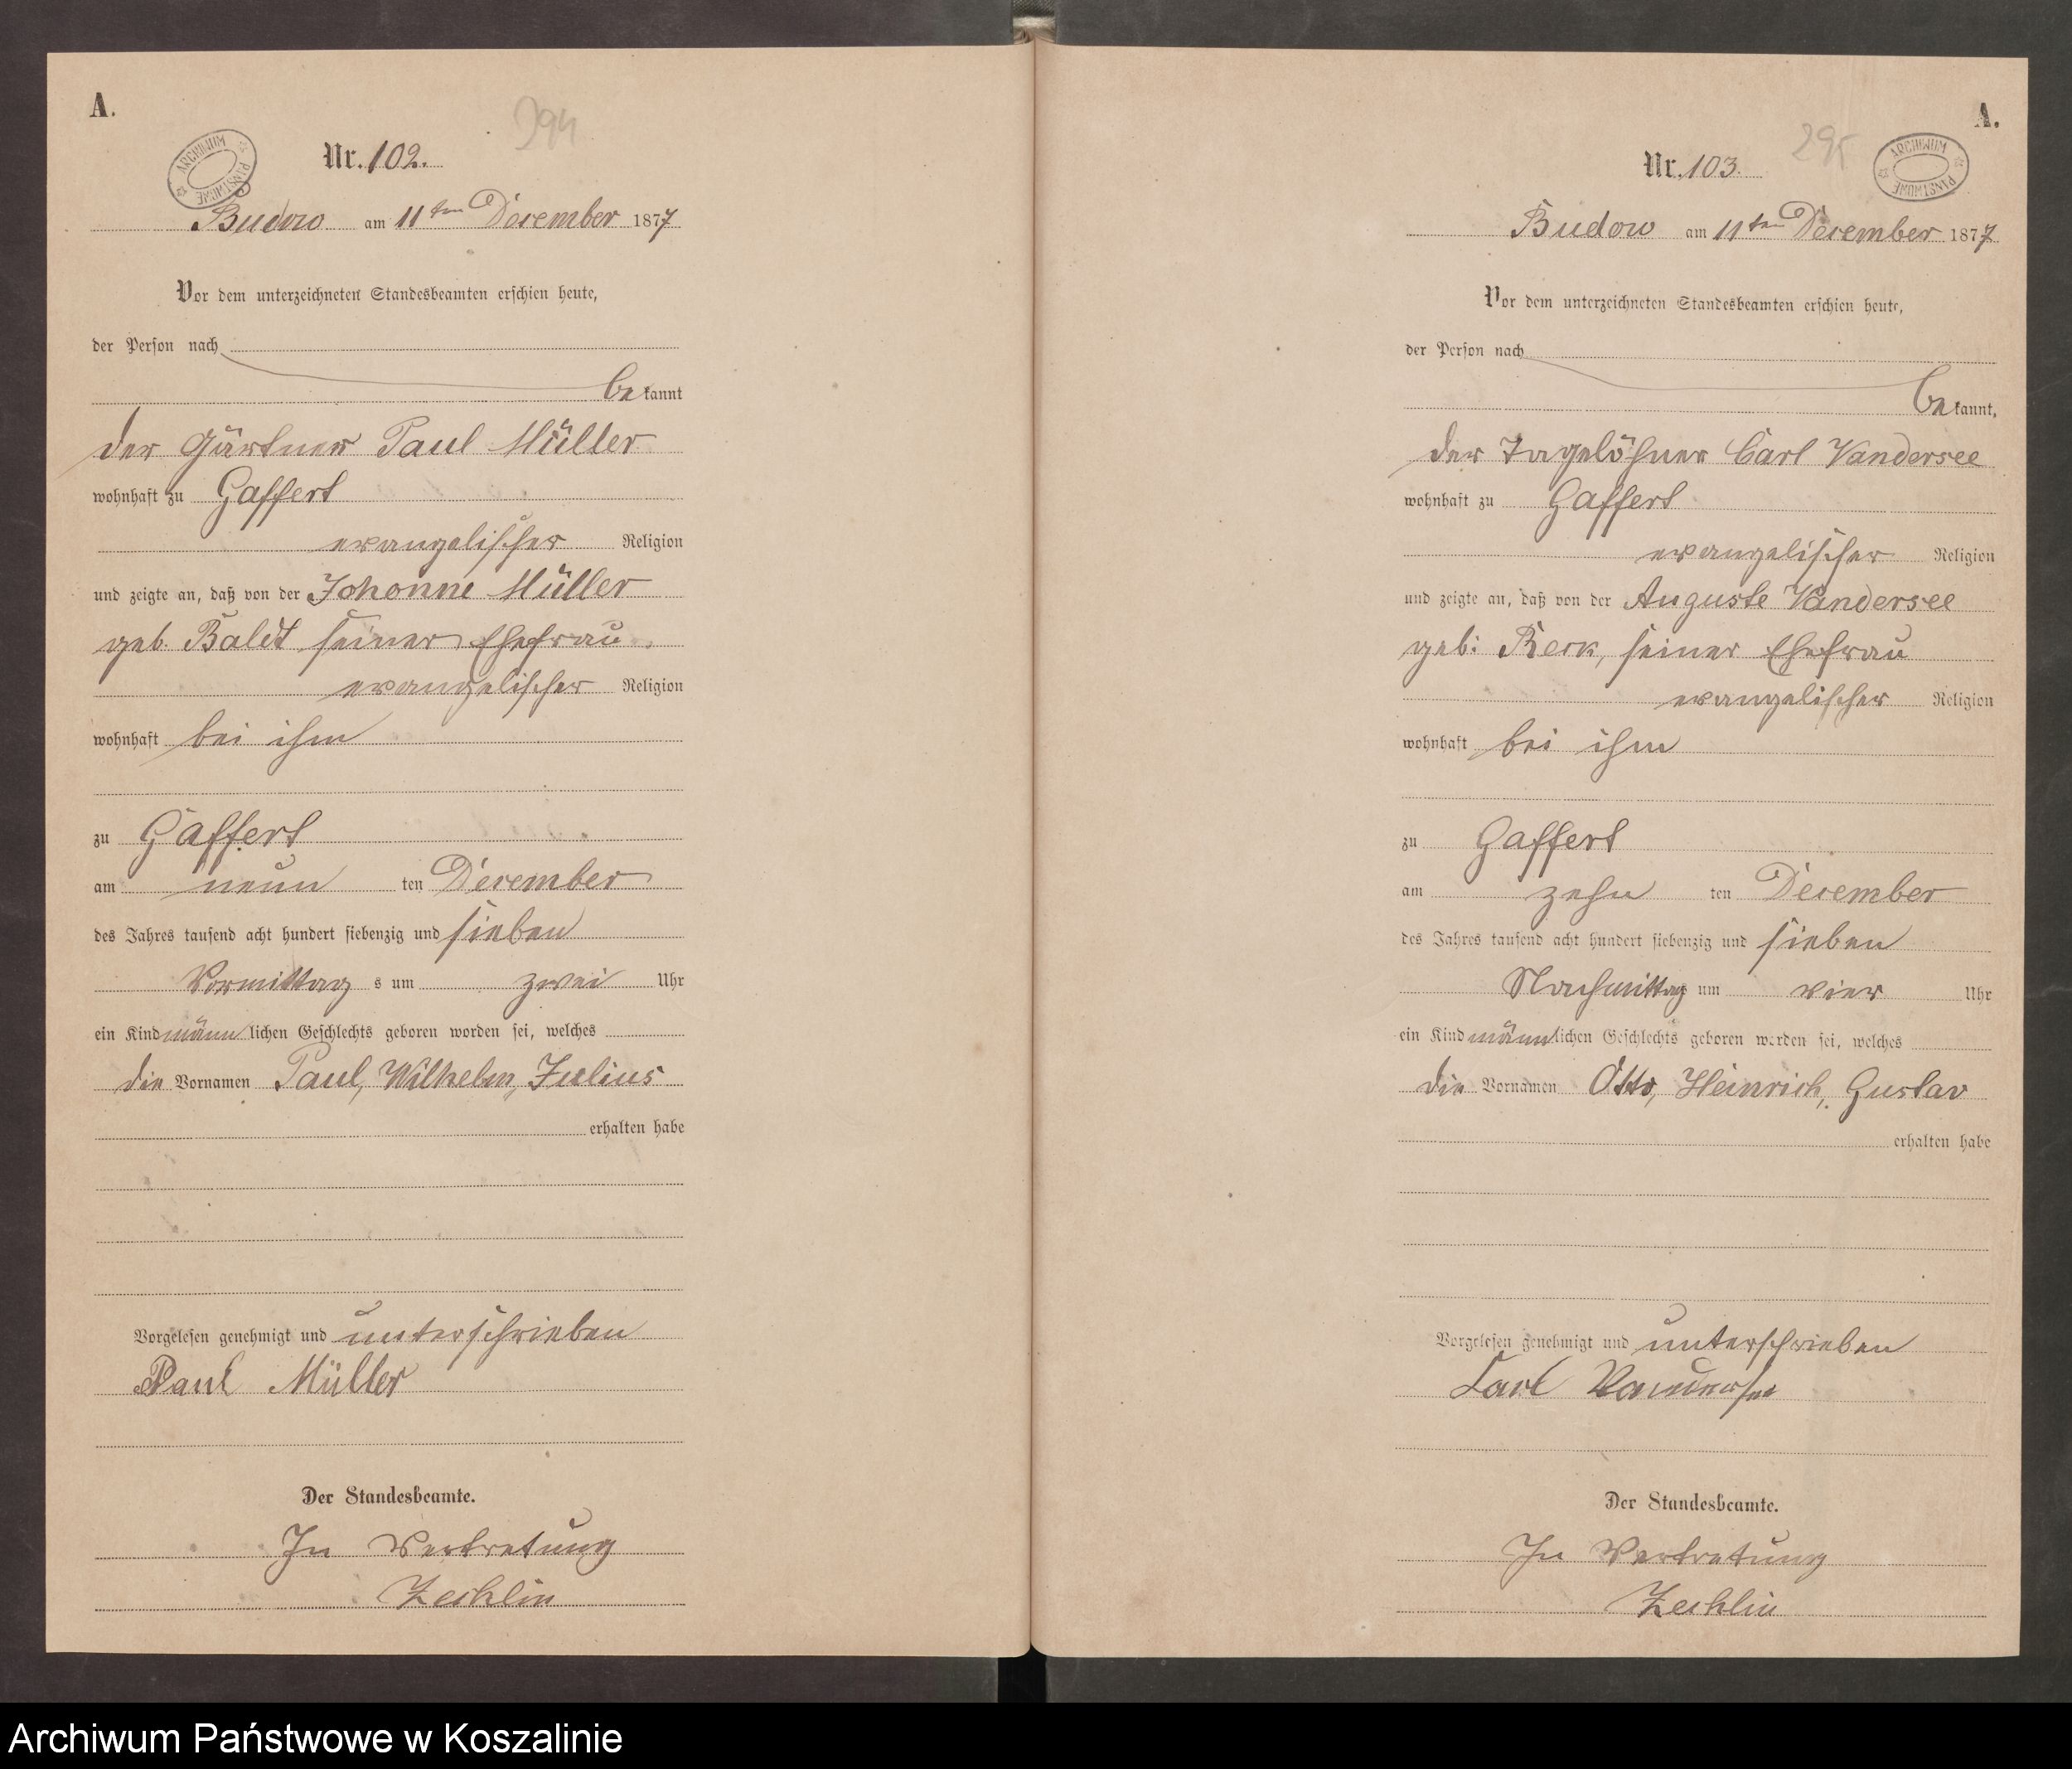 A.
294
ARCHIWUM PAŃSTWOWE
Nr. 102.
Budow am 11ten December 1877
Vor dem unterzeichneten Standesbeamten erschien heute,
der Person nach
bekannt
der Gärtner Paul Müller
wohnhaft zu Gaffert
evangelischer Religion
und zeigte an, daß von der Johanne Müller
geb. Baldt seiner Ehefrau
evangelischer Religion
wohnhaft bei ihm
zu Gaffert
am neun ten December
des Jahres tausend acht hundert siebenzig und sieben
Vormittag s um zwei Uhr
ein Kind männlichen Geschlechts geboren worden sei, welches
die Vornamen Paul, Wilhelm, Julius
erhalten habe
Vorgelesen genehmigt und unterschrieben
Paul Müller
Der Standesbeamte.
In Vertretung
Zechlin
A.
295
ARCHIWUM PAŃSTWOWE
Nr. 103.
Budow am 11ten December 1877
Vor dem unterzeichneten Standesbeamten erschien heute,
der Person nach
bekannt,
der Tagelöhner Carl Vandersee
wohnhaft zu Gaffert
evangelischer Religion
und zeigte an, daß von der Auguste Vandersee
geb: Reck, seiner Ehefrau
evangelischer Religion
wohnhaft bei ihm
zu Gaffert
am zehn ten December
des Jahres tausend acht hundert siebenzig und sieben
Nachmittag um vier Uhr
ein Kind männlichen Geschlechts geboren worden sei, welches
die Vornamen Otto, Heinrich, Gustav
erhalten habe
Vorgelesen genehmigt und unterschrieben
Carl Vandersee
Der Standesbeamte.
In Vertretung
Zechlin
Archiwum Państwowe w Koszalinie